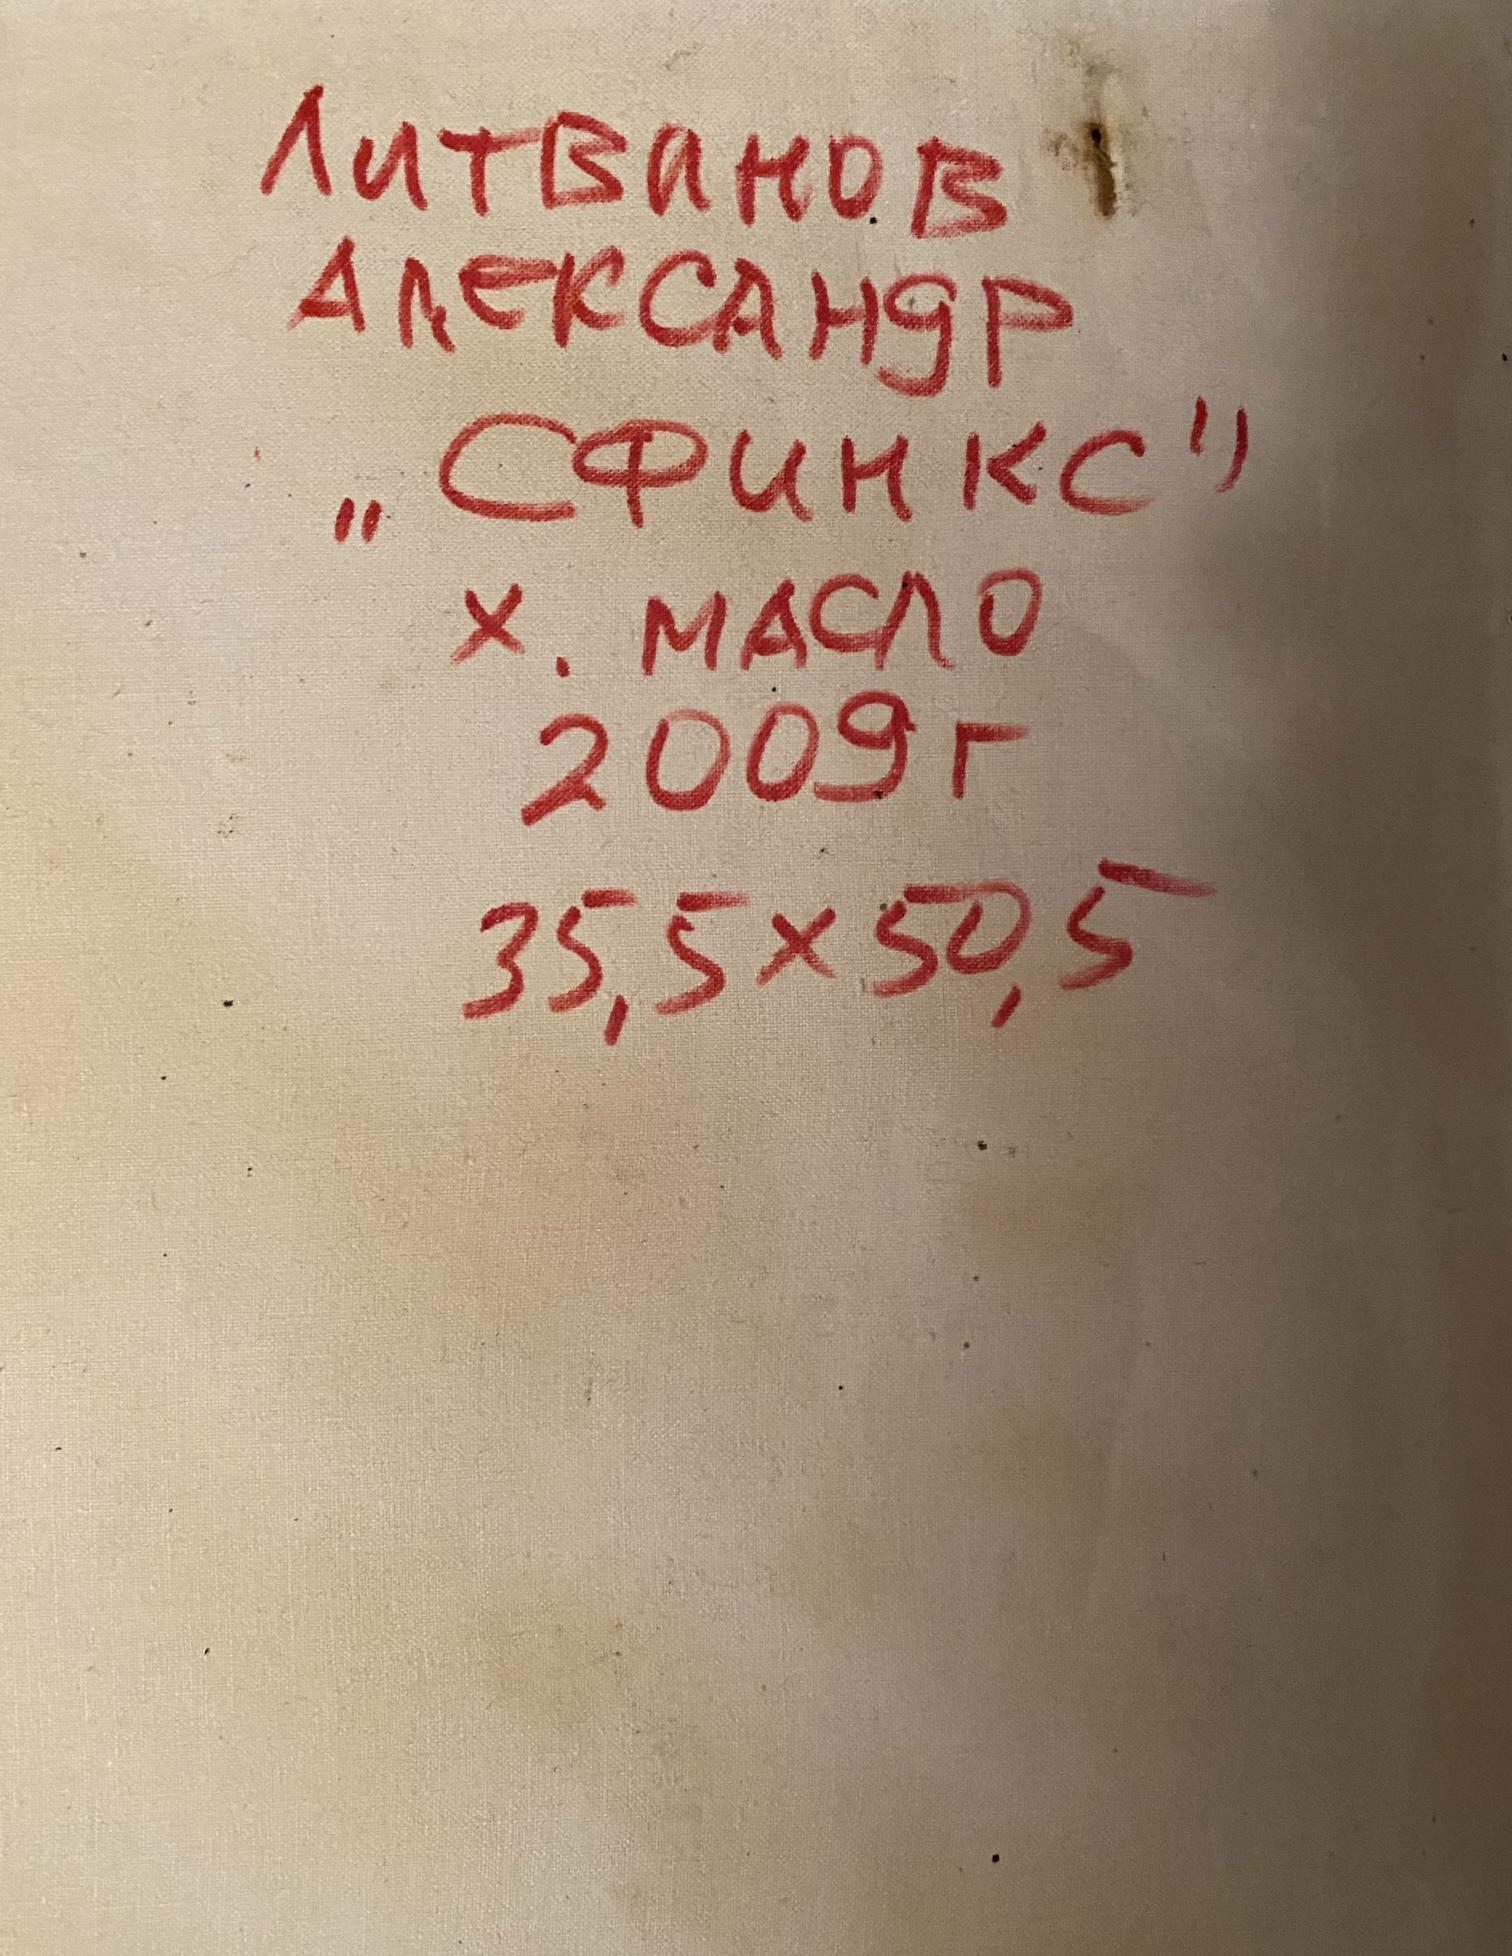 ЛИТВИНОВ
АЛЕКСАНДР
„СФИНКС"
х. МАСЛО
2009г
35,5х50,5